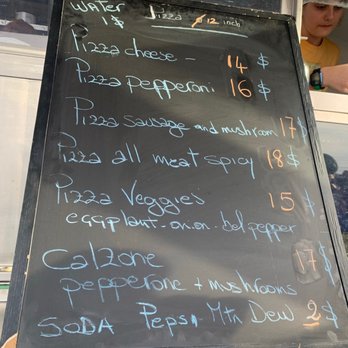 WATER
1$
Pizza 12 inch
Pizza cheese - 14 $
Pizza pepperoni 16 $
Pizza sausage and mushroom 17 $
Pizza all meat spicy 18 $
Pizza Veggies 15 $
eggplant - onion - bel pepper
Calzone 17 $
pepperone + mushrooms
SODA Pepsi Mtn Dew 2 $